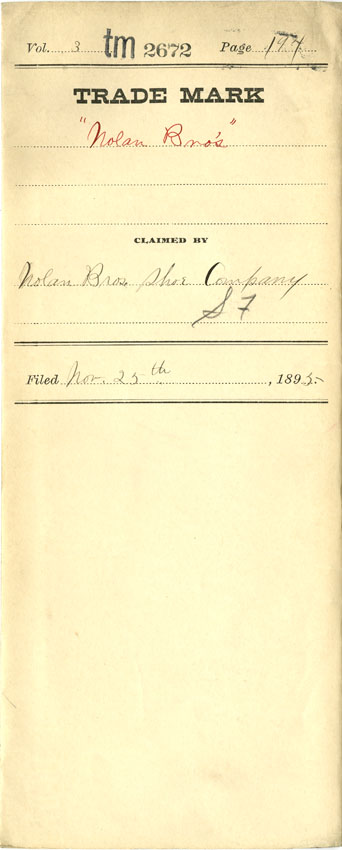 Vol. 3 tm 2672 Page 197
TRADE MARK
"Nolan Bro's"
CLAIMED BY
Nolan Bros Shoe Company
S F
Filed Nov. 25th, 1895.